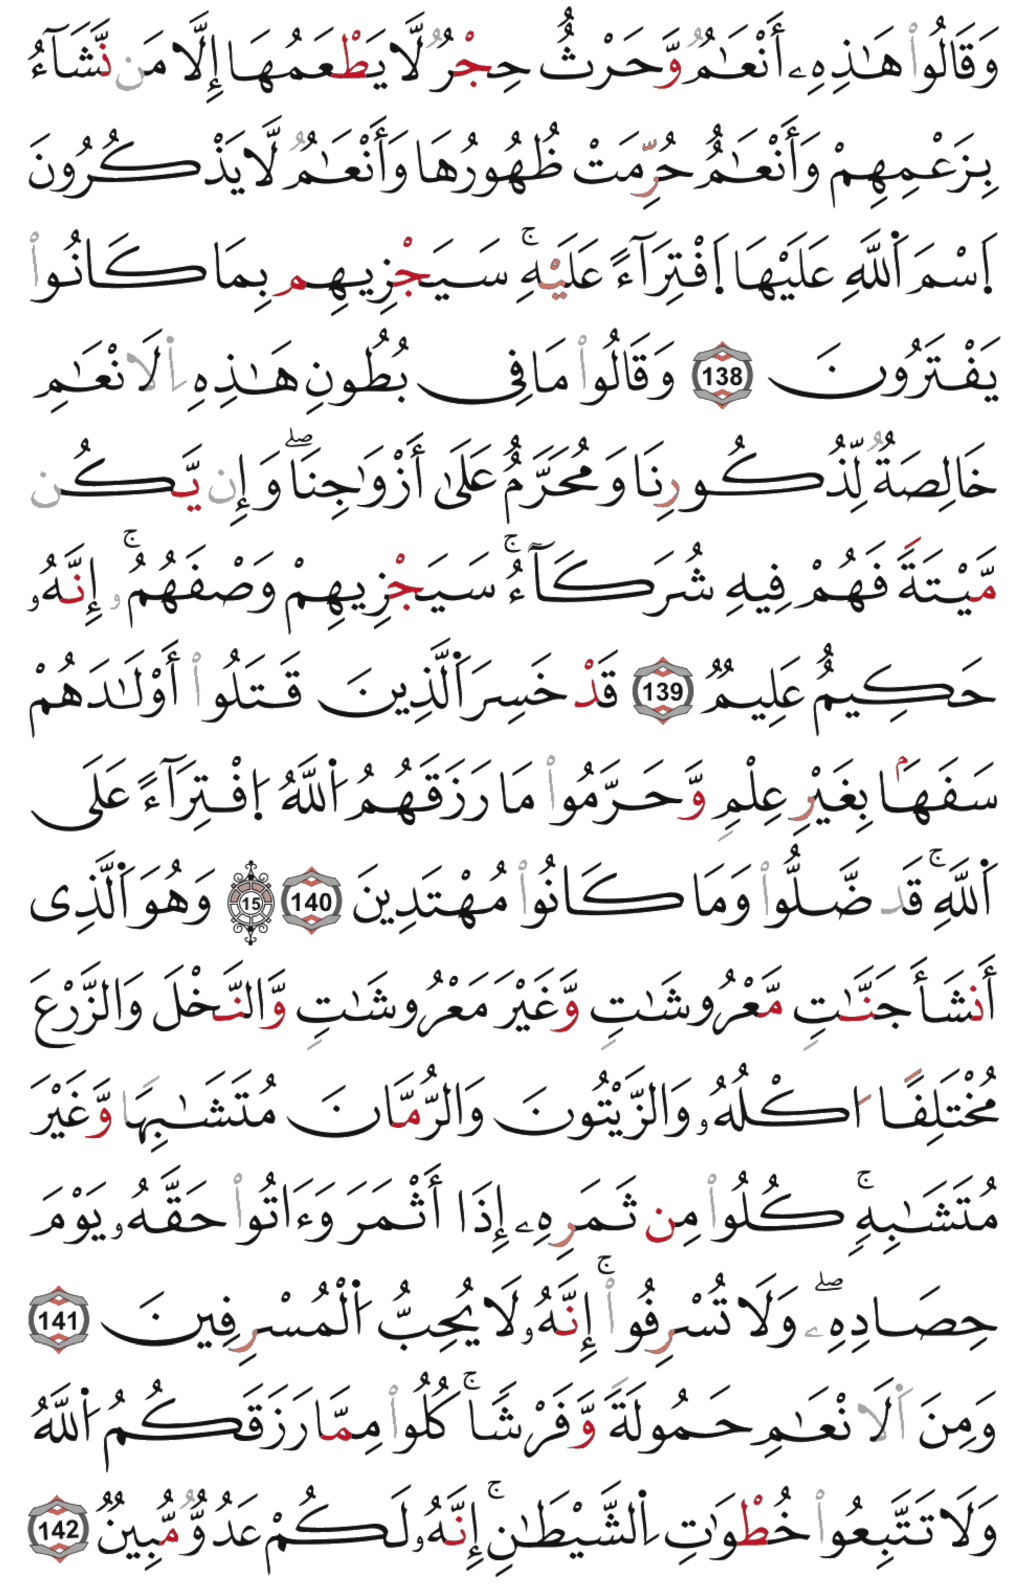 وَقَالُواْ هَٰذِهِۦ أَنْعَٰمٌ وَّحَرْثٌ حِجْرٌ لَّا يَطْعَمُهَا إِلَّا مَن نَّشَآءُ
بِزَعْمِهِمْ وَأَنْعَٰمٌ حُرِّمَتْ ظُهُورُهَا وَأَنْعَٰمٌ لَّا يَذْكُرُونَ
اَسْمَ اَللَّهِ عَلَيْهَا اَفْتِرَآءً عَلَيْهِ ۚ سَيَجْزِيهِم بِمَا كَانُواْ
يَفْتَرُونَ 138 وَقَالُواْ مَا فِى بُطُونِ هَٰذِهِ اِلَانْعَٰمِ
خَالِصَةٌ لِّذُكُورِنَا وَمُحَرَّمٌ عَلَىٰ أَزْوَٰجِنَا ۖ وَإِن يَّكُن
مَّيْتَةً فَهُمْ فِيهِ شُرَكَآءُ ۚ سَيَجْزِيهِمْ وَصْفَهُمُۥ ۚ إِنَّهُۥ
حَكِيمٌ عَلِيمٌ 139 قَدْ خَسِرَ اَلَّذِينَ قَتَلُواْ أَوْلَٰدَهُمْ
سَفَهَاۢ بِغَيْرِ عِلْمٍ وَّحَرَّمُواْ مَا رَزَقَهُمُ اُللَّهُ اِفْتِرَآءً عَلَى
اَللَّهِ ۚ قَد ضَّلُّواْ وَمَا كَانُواْ مُهْتَدِينَ 140 15 وَهُوَ اَلَّذِى
أَنشَأَ جَنَّٰتٍ مَّعْرُوشَٰتٍ وَّغَيْرَ مَعْرُوشَٰتٍ وَّالنَّخْلَ وَالزَّرْعَ
مُخْتَلِفًا اكْلُهُۥ وَالزَّيْتُونَ وَالرُّمَّانَ مُتَشَٰبِهًا وَّغَيْرَ
مُتَشَٰبِهٍ ۚ كُلُواْ مِن ثَمَرِهِۦ إِذَا أَثْمَرَ وَءَاتُواْ حَقَّهُۥ يَوْمَ
حِصَادِهِۦ ۖ وَلَا تُسْرِفُواْ ۚ إِنَّهُۥ لَا يُحِبُّ اُلْمُسْرِفِينَ 141
وَمِنَ اَلَانْعَٰمِ حَمُولَةً وَّفَرْشًا ۚ كُلُواْ مِمَّا رَزَقَكُمُ اُللَّهُ
وَلَا تَتَّبِعُواْ خُطْوَٰتِ اِلشَّيْطَٰنِ ۚ إِنَّهُۥ لَكُمْ عَدُوٌّ مُّبِينٌ 142